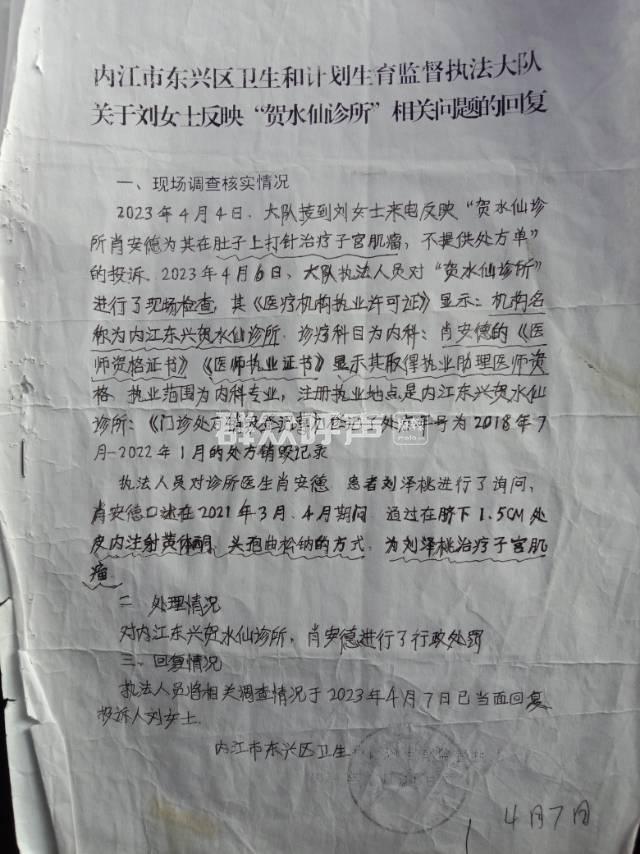 内江市东兴区卫生和计划生育监督执法大队
关于刘女士反映“贺水仙诊所”相关问题的回复
一、现场调查核实情况
2023年4月4日，大队接到刘女士来电反映“贺水仙诊
所肖安德为其在肚子上打针治疗子宫肌瘤，不提供处方单”
的投诉。2023年4月6日，大队执法人员对“贺水仙诊所”
进行了现场检查，其《医疗机构执业许可证》显示：机构名
称为内江东兴贺水仙诊所，诊疗科目为内科；肖安德的《医
师资格证书》《医师执业证书》显示其取得执业助理医师资
格，执业范围为内科专业，注册执业地点是内江东兴贺水仙
诊所：《门诊处方销毁登记 处方年号为2018年7
月-2022年1月的处方销毁记录
执法人员对诊所医生肖安德、患者刘泽桃进行了询问，
肖安德口述在2021年3月、4月期间，通过在脐下1.5CM处
皮内注射黄体酮、头孢曲松钠的方式，为刘泽桃治疗子宫肌
瘤。
二 处理情况
对内江东兴贺水仙诊所，肖安德进行了行政处罚
三、回复情况
执法人员将相关调查情况于2023年4月7日已当面回复
投诉人刘女士.
内江市东兴区卫生
4月7日
群众呼声